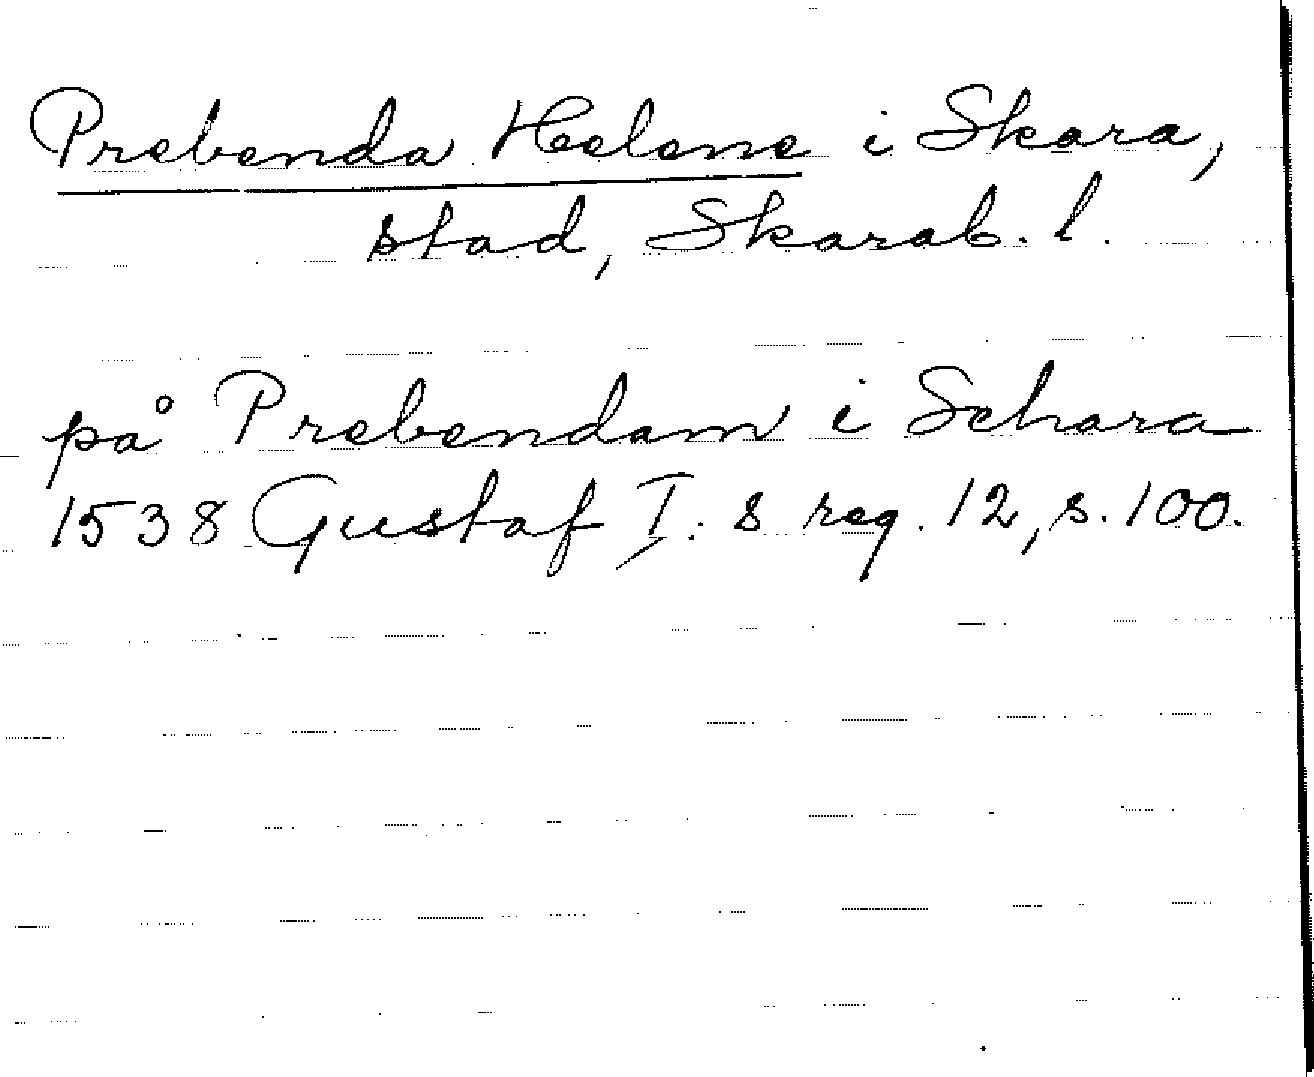 Prebenda Helene i Skara,
stad, Skarab. l.
på Prebendam i Schara
1538 Gustaf I:s reg. 12, s. 100.